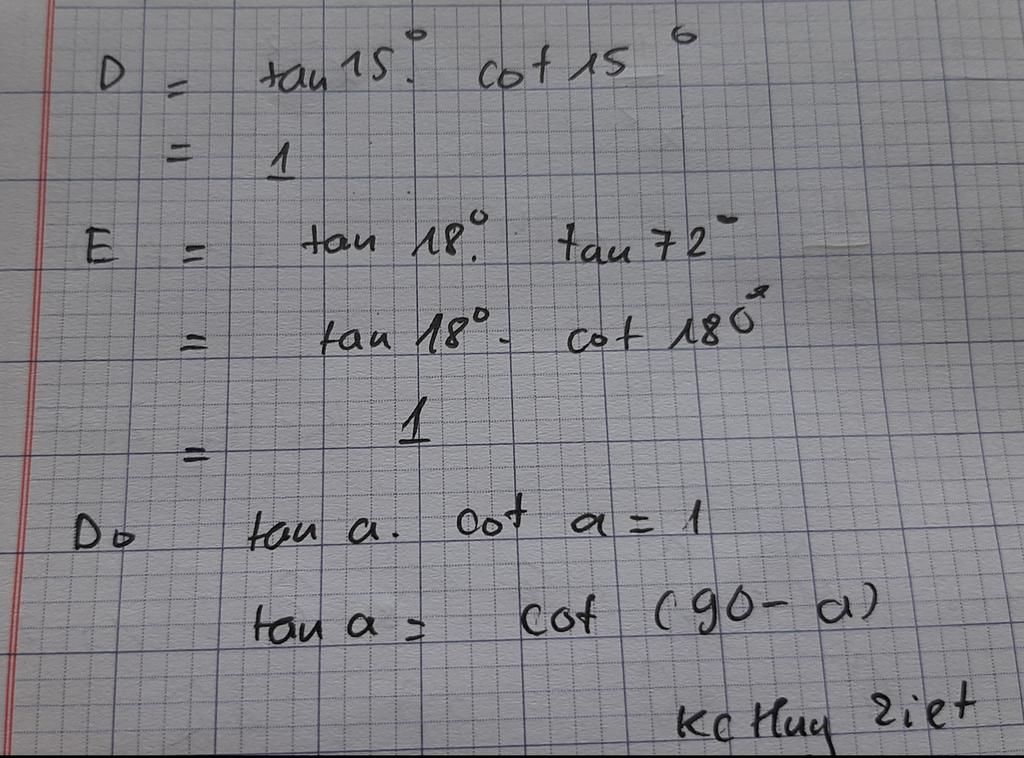 D = tan 15°. cot 15°
= 1
E = tan 18°. tan 72°
= tan 18°. cot 180°
= 1
Do tan a. cot a = 1
tan a = cot (90 - a)